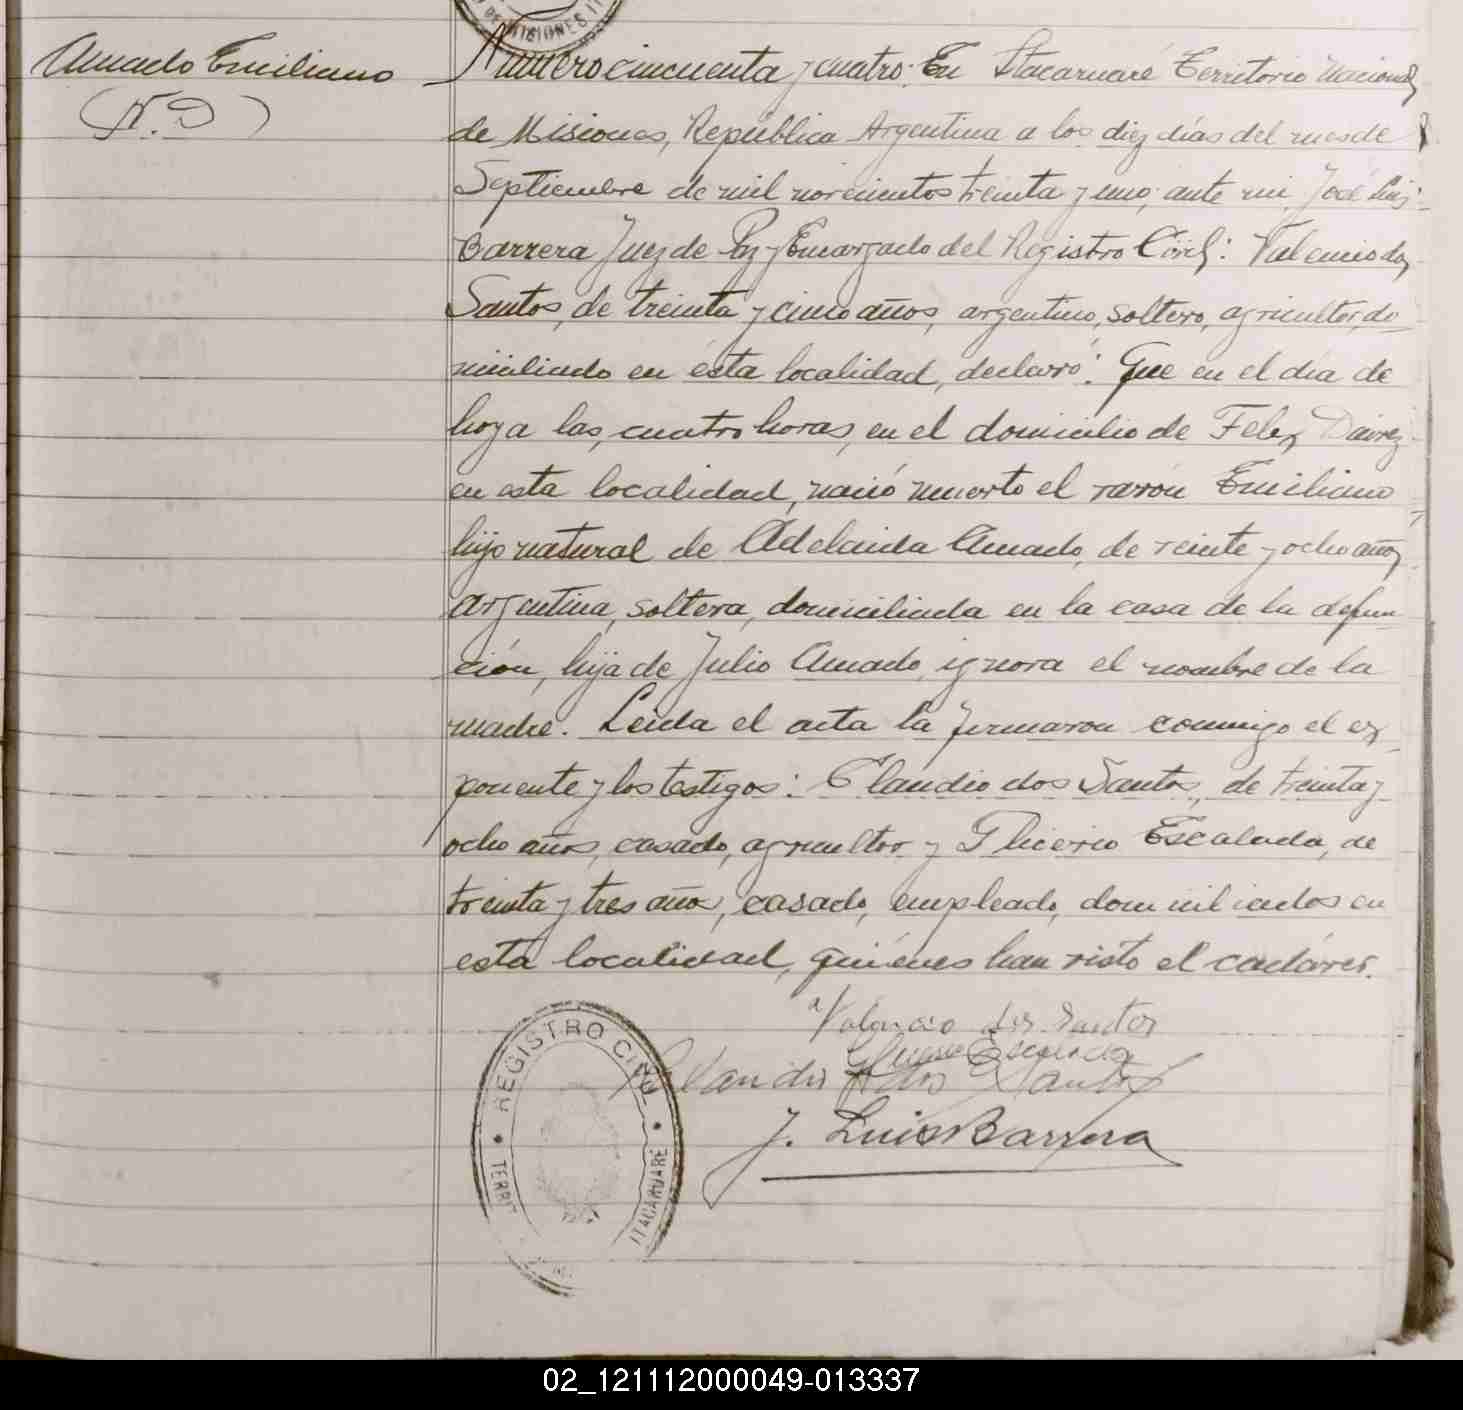 DE MISIONES
Amado Emiliano
(N.D)
Número cincuenta y cuatro. En Itacaruaré Territorio Nacional
de Misiones, República Argentina a los diez días del mes de
Septiembre de mil novecientos treinta y uno, ante mi, José Luis
Barrera Juez de Paz y Encargado del Registro Civil: Valencio dos
Santos, de treinta y cinco años, argentino, soltero, agricultor, do
miciliado en esta localidad, declaró: Que en el día de
hoy a las, cuatro horas, en el domicilio de Felix
en esta localidad, nació muerto el varón Emiliano
hijo natural de Adelaida Amado, de veinte y ocho años,
argentina, soltera, domiciliada en la casa de la defun
ción, hija de Julio Amado, ignora el nombre de la
madre. Leida el acta la firmaron conmigo el ex
ponente y los testigos: Claudio dos Santos, de treinta y
ocho años, casado, agricultor y Glicerio Escalada, de
treinta y tres años, casado, empleado, domiciliados en
esta localidad, quiénes han visto el cadáver.
Valencio dos Santos
Glicerio Escalada
Claudio dos Santos
J. Luis Barrera
REGISTRO CIVIL
TERRIT
ITACARUARE
02_121112000049-013337